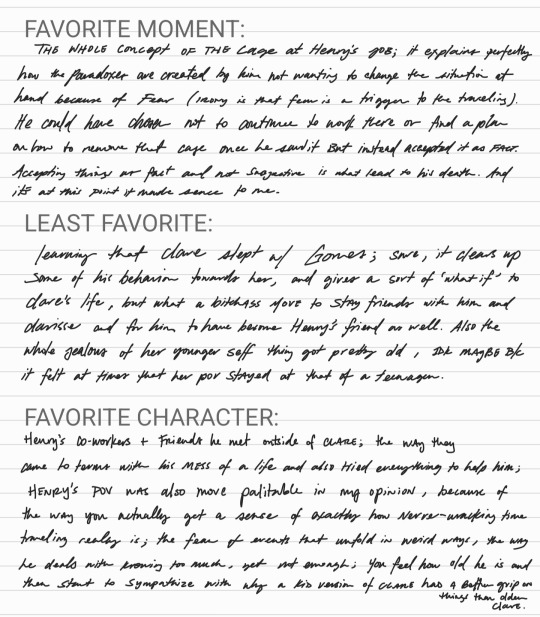 FAVORITE MOMENT:
THE WHOLE CONCEPT OF THE Cage at Henry's JOB; it explains perfectly
how the Paradoxes are created by him not wanting to change the situation at
hand because of Fear (Irony is that fear is a trigger to the traveling).
He could have chosen not to continue to work there or find a plan
on how to remove that cage once he saw it But instead accepted it as FACT.
Accepting things as fact and not subjective is what lead to his death. And
its at this point it made sence to me.
LEAST FAVORITE:
learning that Clare slept w/ Gomez; sure, it clears up
some of his behavior towards her, and gives a sort of 'what if' to
Clare's life, but what a bitchass move to stay friends with him and
Clarisse and for him to have become Henry's friend as well. Also the
whole jealous of her younger self thing got pretty old, IDK MAYBE B/c
it felt at times that her pov stayed at that of a teenager.
FAVORITE CHARACTER:
Henry's co-workers + Friends he met outside of CLARE; the way they
came to terms with his MESS of a life and also tried everything to help him;
HENRY'S POV WAS also more palitable in my opinion, because of
the way you actually get a sense of exactly how Nerve-wracking time
traveling really is; the fear of events that unfold in weird ways, the way
he deals with knowing too much, yet not enough; you feel how old he is and
then start to sympathize with why a kid version of CLARE had a better grip on
things than older
Clare.